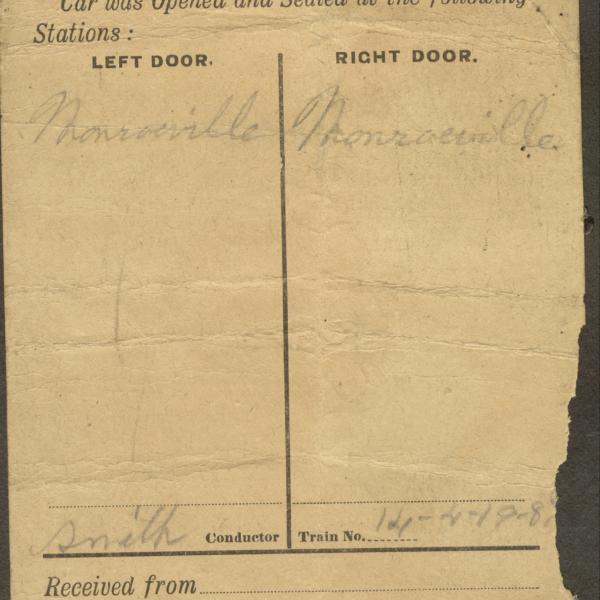 Car was Opened and Sealed at the following
Stations:
LEFT DOOR. RIGHT DOOR.
Monroeville Monroeville
Smith Conductor Train No. 14-2-19-8
Received from